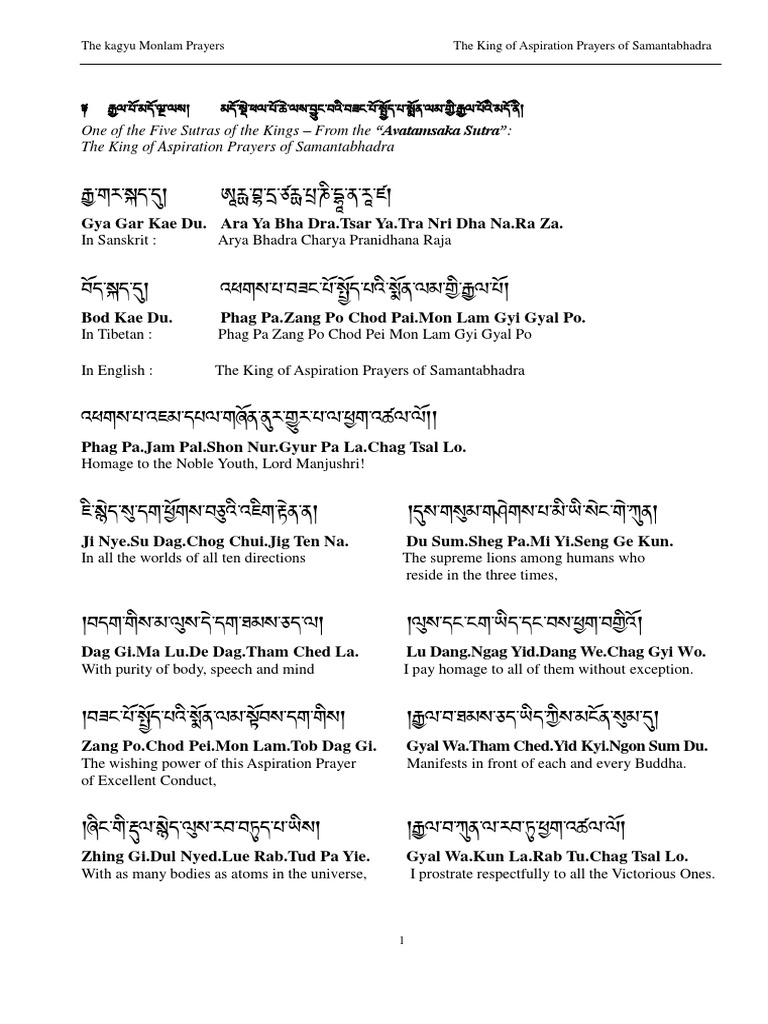 The kagyu Monlam Prayers The King of Aspiration Prayers of Samantabhadra
༄ རྒྱལ་པོ་མདོ་ལྔ་ལས། མདོ་སྡེ་ཕལ་པོ་ཆེ་ལས་བྱུང་བའི་བཟང་པོ་སྤྱོད་པ་སྨོན་ལམ་གྱི་རྒྱལ་པོའི་མདོ་ནི།
One of the Five Sutras of the Kings – From the “Avatamsaka Sutra”:
The King of Aspiration Prayers of Samantabhadra
རྒྱ་གར་སྐད་དུ། ཨཱརྱ་བྷ་དྲ་ཙརྱ་པྲ་ཎི་དྷཱ་ན་རཱ་ཛ།
Gya Gar Kae Du. Ara Ya Bha Dra.Tsar Ya.Tra Nri Dha Na.Ra Za.
In Sanskrit : Arya Bhadra Charya Pranidhana Raja
བོད་སྐད་དུ། འཕགས་པ་བཟང་པོ་སྤྱོད་པའི་སྨོན་ལམ་གྱི་རྒྱལ་པོ།
Bod Kae Du. Phag Pa.Zang Po Chod Pai.Mon Lam Gyi Gyal Po.
In Tibetan : Phag Pa Zang Po Chod Pei Mon Lam Gyi Gyal Po
In English : The King of Aspiration Prayers of Samantabhadra
འཕགས་པ་འཇམ་དཔལ་གཞོན་ནུར་གྱུར་པ་ལ་ཕྱག་འཚལ་ལོ།།
Phag Pa.Jam Pal.Shon Nur.Gyur Pa La.Chag Tsal Lo.
Homage to the Noble Youth, Lord Manjushri!
ཇི་སྙེད་སུ་དག་ཕྱོགས་བཅུའི་འཇིག་རྟེན་ན། །དུས་གསུམ་གཤེགས་པ་མི་ཡི་སེང་གེ་ཀུན།
Ji Nye.Su Dag.Chog Chui.Jig Ten Na. Du Sum.Sheg Pa.Mi Yi.Seng Ge Kun.
In all the worlds of all ten directions The supreme lions among humans who
reside in the three times,
།བདག་གིས་མ་ལུས་དེ་དག་ཐམས་ཅད་ལ། །ལུས་དང་ངག་ཡིད་དང་བས་ཕྱག་བགྱིའོ།
Dag Gi.Ma Lu.De Dag.Tham Ched La. Lu Dang.Ngag Yid.Dang We.Chag Gyi Wo.
With purity of body, speech and mind I pay homage to all of them without exception.
།བཟང་པོ་སྤྱོད་པའི་སྨོན་ལམ་སྟོབས་དག་གིས། །རྒྱལ་བ་ཐམས་ཅད་ཡིད་ཀྱིས་མངོན་སུམ་དུ།
Zang Po.Chod Pei.Mon Lam.Tob Dag Gi. Gyal Wa.Tham Ched.Yid Kyi.Ngon Sum Du.
The wishing power of this Aspiration Prayer Manifests in front of each and every Buddha.
of Excellent Conduct,
།ཞིང་གི་རྡུལ་སྙེད་ལུས་རབ་བཏུད་པ་ཡིས། །རྒྱལ་བ་ཀུན་ལ་རབ་ཏུ་ཕྱག་འཚལ་ལོ།
Zhing Gi.Dul Nyed.Lue Rab.Tud Pa Yie. Gyal Wa.Kun La.Rab Tu.Chag Tsal Lo.
With as many bodies as atoms in the universe, I prostrate respectfully to all the Victorious Ones.
1